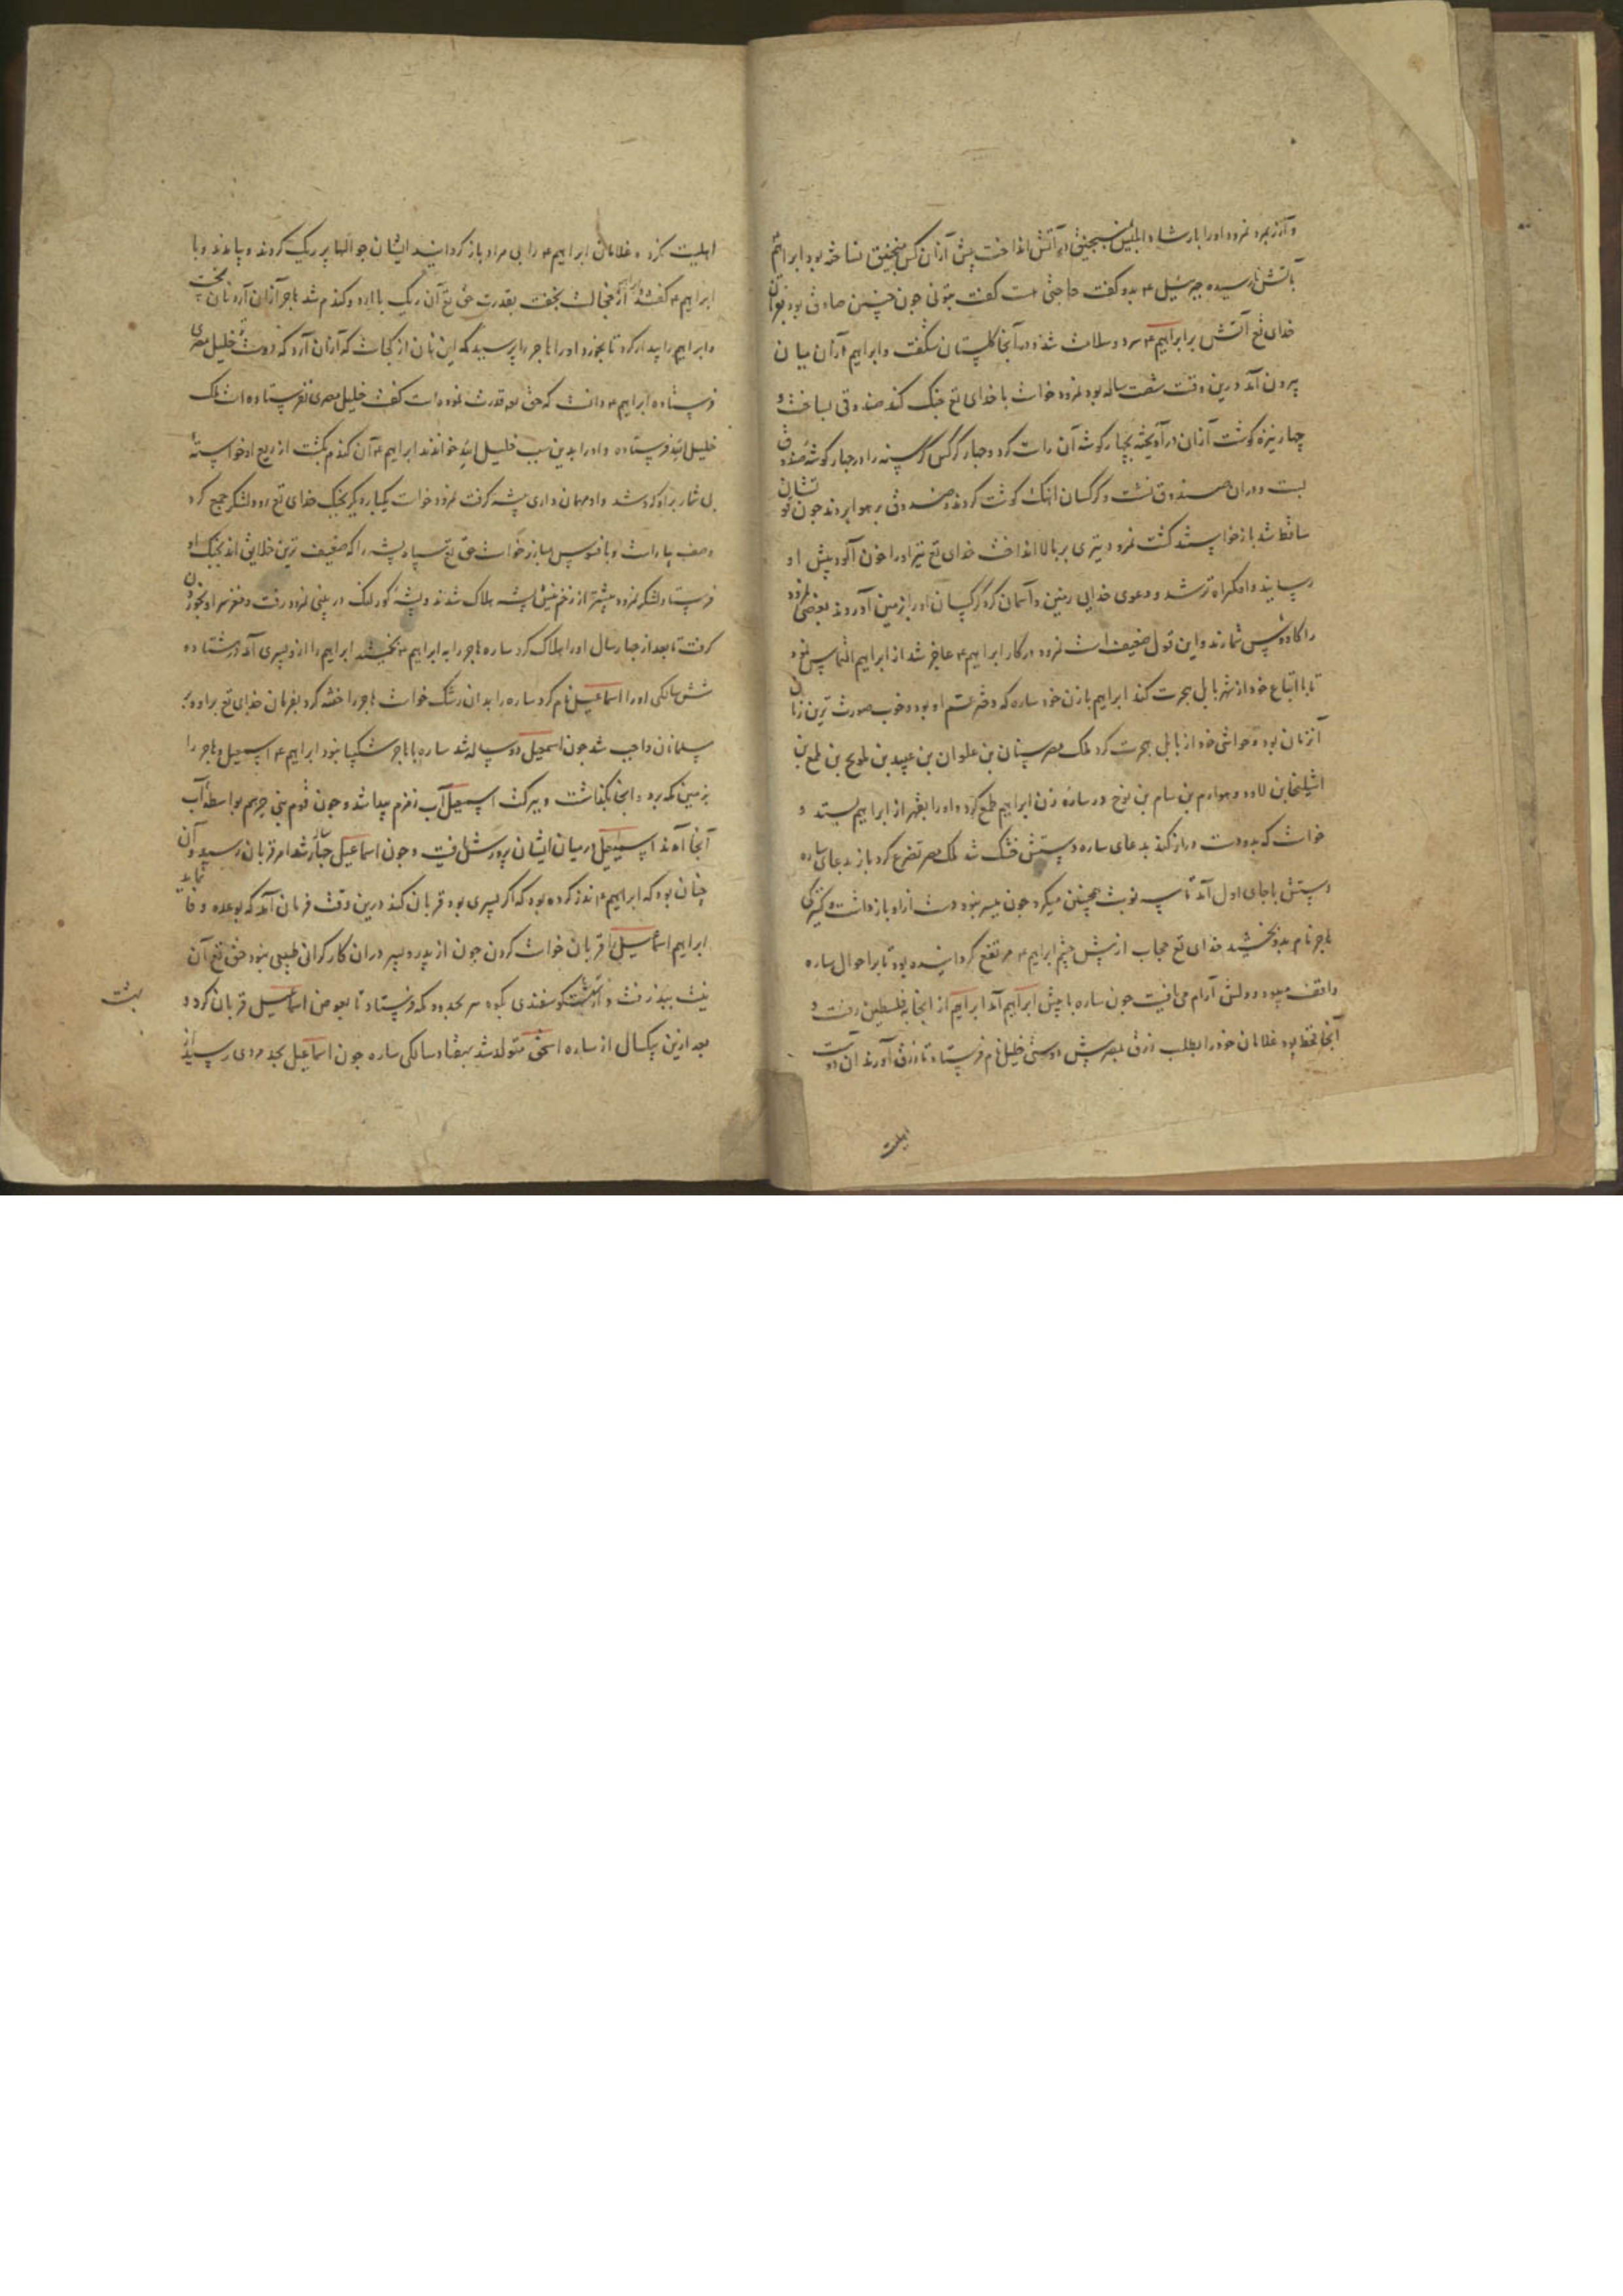 و آزر بمرد نمرود او را بارشاد ابلیس بمنجنیق در آتش انداخت پیش ازان کس منجنیق نساخته بود ابراهیم
بآتش نارسیده جبرئیل ۴ بدو گفت حاجتی هست گفت بتونی چون چنین صادق بود بفرمان
خدای تع آتش بر ابراهیم ۴ سرد و سلامت شد و در آنجا گلستان بشگفت و ابراهیم ازان میان
بیرون آمد درین وقت شصت ساله بود نمرود خواست با خدای تع جنگ کند صندوقی بساخت و
چهار نیزه گوشت ازان درآویخته بچهار گوشه آن راست کرد و چهار کرکس گرسنه را در چهار گوشه صندوق
بست و دران صندوق نشست و کرکسان آهنگ گوشت کردند و صندوق بر هوا بردند چون قوتشان
ساقط شد بازخواستند گشت نمرود تیری بر بالا انداخت خدای تع تیر او را خون آلود پیش او
رسانید و او گمراه تر شد و دعوی خدایی زمین و آسمان کرد کرکسان او را بزمین آوردند بعضی نمرود
را کاووس شمارند و این قول ضعیف است نمرود در کار ابراهیم ۴ عاجز شد از ابراهیم التماس نمود
تا با اتباع خود از شهر بابل هجرت کند ابراهیم با زن خود ساره که دختر عم او بود و خوب صورت ترین زنان
آن زمان بود و حواشی خود از بابل هجرت کرد ملک مصر سنان بن علوان بن عبید بن عویج بن عملیق بن
لاود و هو ارم بن سام بن نوح در ساره زن ابراهیم طمع کرد و او را بقهر از ابراهیم بستد و
خواست که بدو دست دراز کند بدعای ساره دستش خشک شد ملک مصر تضرع کرد باز بدعای ساره
دستش با جای اول آمد تا سه نوبت همچنین میکرد چون میسر نبود دست ازو باز داشت و کنیزکی
هاجر نام بدو بخشید خدای تع حجاب از پیش چشم ابراهیم ۴ مرتفع گردانیده بود تا بر احوال ساره
واقف میبود و دلش آرام می یافت چون ساره با پیش ابراهیم آمد ابراهیم از آنجا بفلسطین رفت و
آنجا قحط بود غلامان خود را بطلب رزق بمصر پیش دوستی خلیل نام فرستاد تا رزق آورند آن دوست
اهلیت
اهلیت نکرد و غلامان ابراهیم ۴ را بی مراد باز گردانید ایشان جوالها پر ریگ کردند و بیامدند و با
ابراهیم ۴ گفتند ابراهیم از خجالت بخفت بقدرت حق تع آن ریگ با آرد و گندم شد هاجر ازان آرد نان پخت
و ابراهیم را بیدار کرد تا بخورد او را هاجر را پرسید که این نان از کجاست گفت ازان آرد که دوست خلیل مصری
فرستاده ابراهیم ۴ دانست که حق تع قدرت نموده است گفت خلیل مصری نفرستاده است بلک
خلیل الله فرستاده و او را بدین سبب خلیل الله خوانند ابراهیم ۴ آن گندم بکشت از ریع او خواسته
بی شمار بر او گرد شد و او مهمان داری پیشه گرفت نمرود خواست یکباره دیگر بجنگ خدای تع رود لشکر جمع کرد
و صف بیاراست و بافسوس مبارز خواست حق تع سپاه پشه را که ضعیف ترین خلایق اند بجنگ او
فرستاد لشکر نمرود بیشتر از زخم نیش پشه هلاک شدند و پشه کور لنگ در بینی نمرود رفت و مغز سر او بخوردن
گرفت تا بعد از چهار سال او را هلاک کرد ساره هاجر را به ابراهیم ۴ بخشید ابراهیم را از و پسری آمد در هشتاد و
شش سالگی او را اسماعیل نام کرد ساره را بدان رشک خواست هاجر را ختنه کرد بفرمان خدای تع بر او و بر
مسلمانان واجب شد چون اسمعیل دو ساله شد ساره با هاجر شکیبا نبود ابراهیم ۴ اسمعیل و هاجر را
بزمین مکه برد و آنجا بگذاشت و ببرکت اسمعیل آب زمزم پیدا شد و چون قوم بنی جرهم بواسطه آب
آنجا آمدند اسمعیل در میان ایشان پرورش یافت و چون اسماعیل جباره شد امر قربان رسید و آن
چنان بود که ابراهیم ۴ نذر کرده بود که اگر پسری بود قربان کند درین وقت فرمان آمد که بوعده وفا نماید
ابراهیم اسماعیل را قربان خواست کردن چون از پدر و پسر دران کار گرانی طبیعی نبود حق تع آن
نیت بپذرفت و از بهشت گوسفندی بکوه سر بحدود مکه فرستاد تا بعوض اسماعیل قربان کرد و
بعد ازین بیکسال از ساره اسحق متولد شد بهفتاد سالگی ساره چون اسماعیل بحد مردی رسید از
بهشت